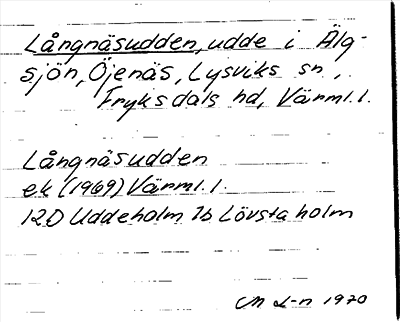 Långnäsudden, udde i Älg-
sjön, Öjenäs, Lysviks sn,
Fryksdals hd, Värml. l.
Långnäsudden
ek (1969) Värml. l.
12D Uddeholm 1b Lövstaholm
L-n 1970